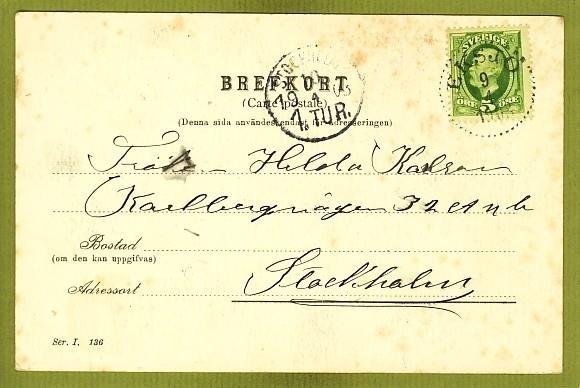 SVERIGE
EKSJÖ
9
ÖRE 5 ÖRE
BREFKORT
(Carte postale)
1. TUR.
(Denna sida användes endast för adresseringen)
Fröken Hilda Karlson
Karlbergsvägen 32 A n b
Bostad
(om den kan uppgifvas)
Stockholm
Adressort
Ser. I. 136